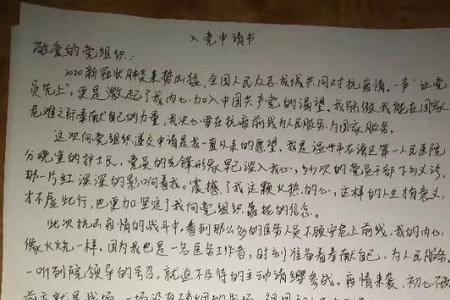 入党申请书
敬爱的党组织:
2020新冠状肺炎来势凶猛,全国人民众志成城共同对抗疫情。一声"让党
员先上",更是激起了我内心加入中国共产党的渴望。我骄傲我能在国家
危难之际奉献自己的力量,我决心要在抗疫前线为人民服务,为国家服务。
这次向党组织递交申请是我一直以来的愿望。我是温州市 第一人民医院
分娩室的护士长,党员的先锋形象早已深入我心,多少次的党员干部下乡义诊,
那一片红深深的影响着我。震撼了我这颗火热的心,这样的人生才有意义,
才不虚此行,也更加坚定了我向党组织靠拢的信念。
此次抗击疫情的战斗中,看到那么多的医务人员不顾安危上前线,我的内心
像火烧一样,因为我也是一名医务工作者,时刻准备着奉献自己,为人民服务。
一听到院领导的号召,就迫不及待的主动请缨参战。疫情来袭,初心不改
就是战场,一场没有硝烟的战场